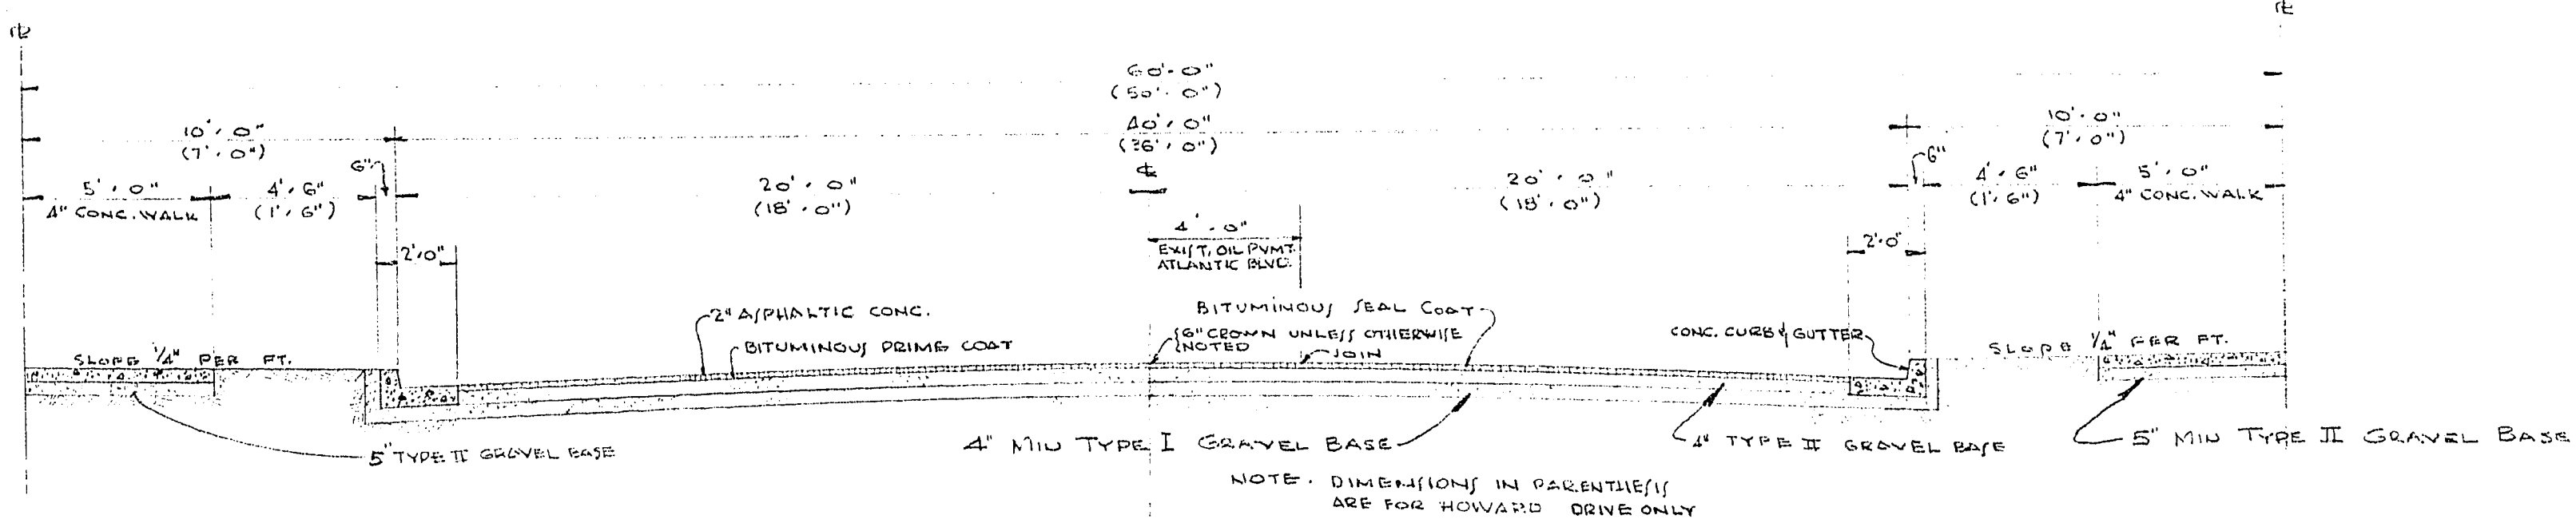 ℄
℄
60'-0"
(50'-0")
10'-0"
(7'-0")
40'-0"
(36'-0")
10'-0"
(7'-0")
6"
℄
6"
5'-0"
4" CONC. WALK
4'-6"
(1'-6")
20'-0"
(18'-0")
20'-0"
(18'-0")
4'-6"
(1'-6")
5'-0"
4" CONC. WALK
2'-0"
4'-0"
EXIST. OIL PVMT.
ATLANTIC BLVD.
2'-0"
2" ASPHALTIC CONC.
BITUMINOUS SEAL COAT
6" CROWN UNLESS OTHERWISE
NOTED
CONC. CURB & GUTTER
BITUMINOUS PRIME COAT
JOIN
SLOPE 1/4" PER FT.
SLOPE 1/4" PER FT.
5" TYPE II GRAVEL BASE
4" MIN TYPE I GRAVEL BASE
4" TYPE II GRAVEL BASE
5" MIN TYPE II GRAVEL BASE
NOTE. DIMENSIONS IN PARENTHESIS
ARE FOR HOWARD DRIVE ONLY